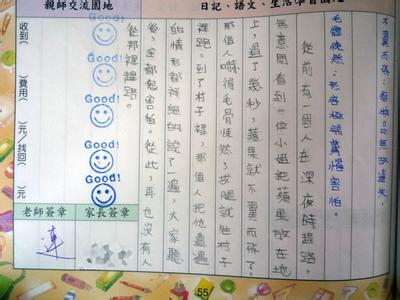 日記、語文、生活學習園地
親師交流園地
不翼而飛:無故遺失。
毛骨悚然:形容極端驚惶害怕。
從前有一個人在深夜時趕路,
無意間看到一位小姐把蘋果放在地
上,過了幾秒,蘋果就不翼而飛了!
那個人嚇得毛骨悚然,拔腿就往村子
裡跑。到了村子裡,那個人把他遭遇
的情形都詳細的說了一遍,大家聽
後,全都害怕。從此,再也沒有人
從那裡趕路。
Good!
Good!
Good!
Good!
收到( )費用( )元/找回( )元
家長簽章
老師簽章
連
55